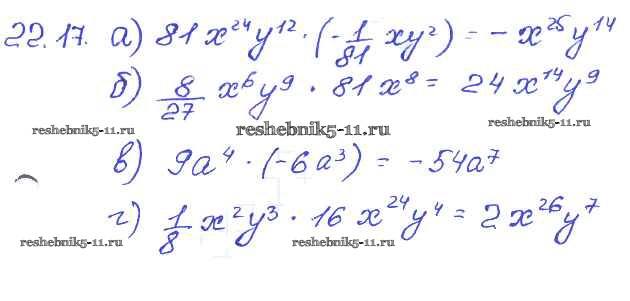 22.17. а) 81 x²⁴y¹² · (-1/81 xy²) = - x²⁵y¹⁴
б) 8/27 x⁶y⁹ · 81 x⁸ = 24 x¹⁴y⁹
reshebnik5-11.ru reshebnik5-11.ru reshebnik5-11.ru
в) 9a⁴ · (-6a³) = -54a⁷
г) 1/8 x²y³ · 16 x²⁴y⁴ = 2x²⁶y⁷
reshebnik5-11.ru reshebnik5-11.ru